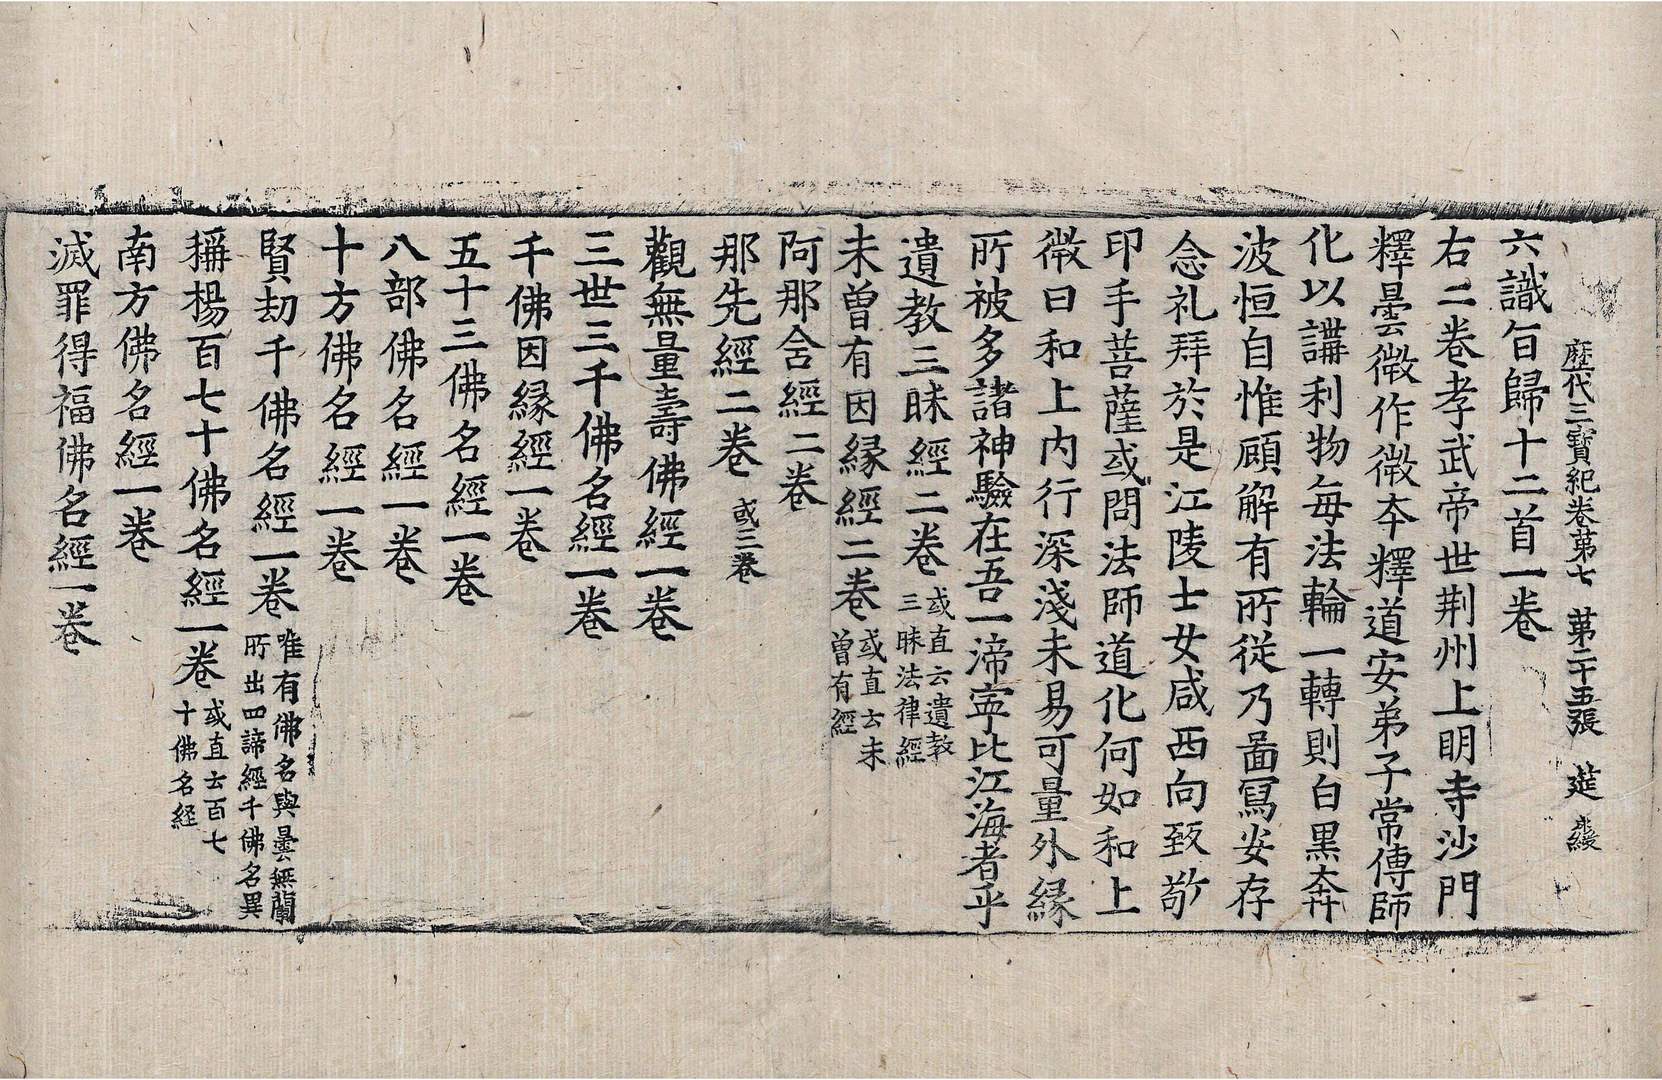 歷代三寶紀卷第七 第二十五張 莚
六識旨歸十二首一卷
右二卷孝武帝世荆州上明寺沙門
釋曇微作微夲釋道安弟子常傅師
化以講利物每法輪一轉則白黑奔
波恒自惟顧解有所從乃啚寫安存
念礼拜於是江陵士女咸西向致敬
印手菩薩或問法師道化何如和上
微曰和上内行深淺未易可量外緣
所被多諸神驗在吾一渧寕比江海者乎
遺教三昧經二卷 或直云遺教三昧法律經
未曾有因緣經二卷 或直云未曾有經
阿那含經二卷
那先經二卷 或三卷
觀無量壽佛經一卷
三世三千佛名經一卷
千佛因緣經一卷
五十三佛名經一卷
八部佛名經一卷
十方佛名經一卷
賢劫千佛名經一卷 唯有佛名與曇無蘭所出四諦經千佛名異
稱楊百七十佛名經一卷 或直云百七十佛名經
南方佛名經一卷
滅罪得福佛名經一卷